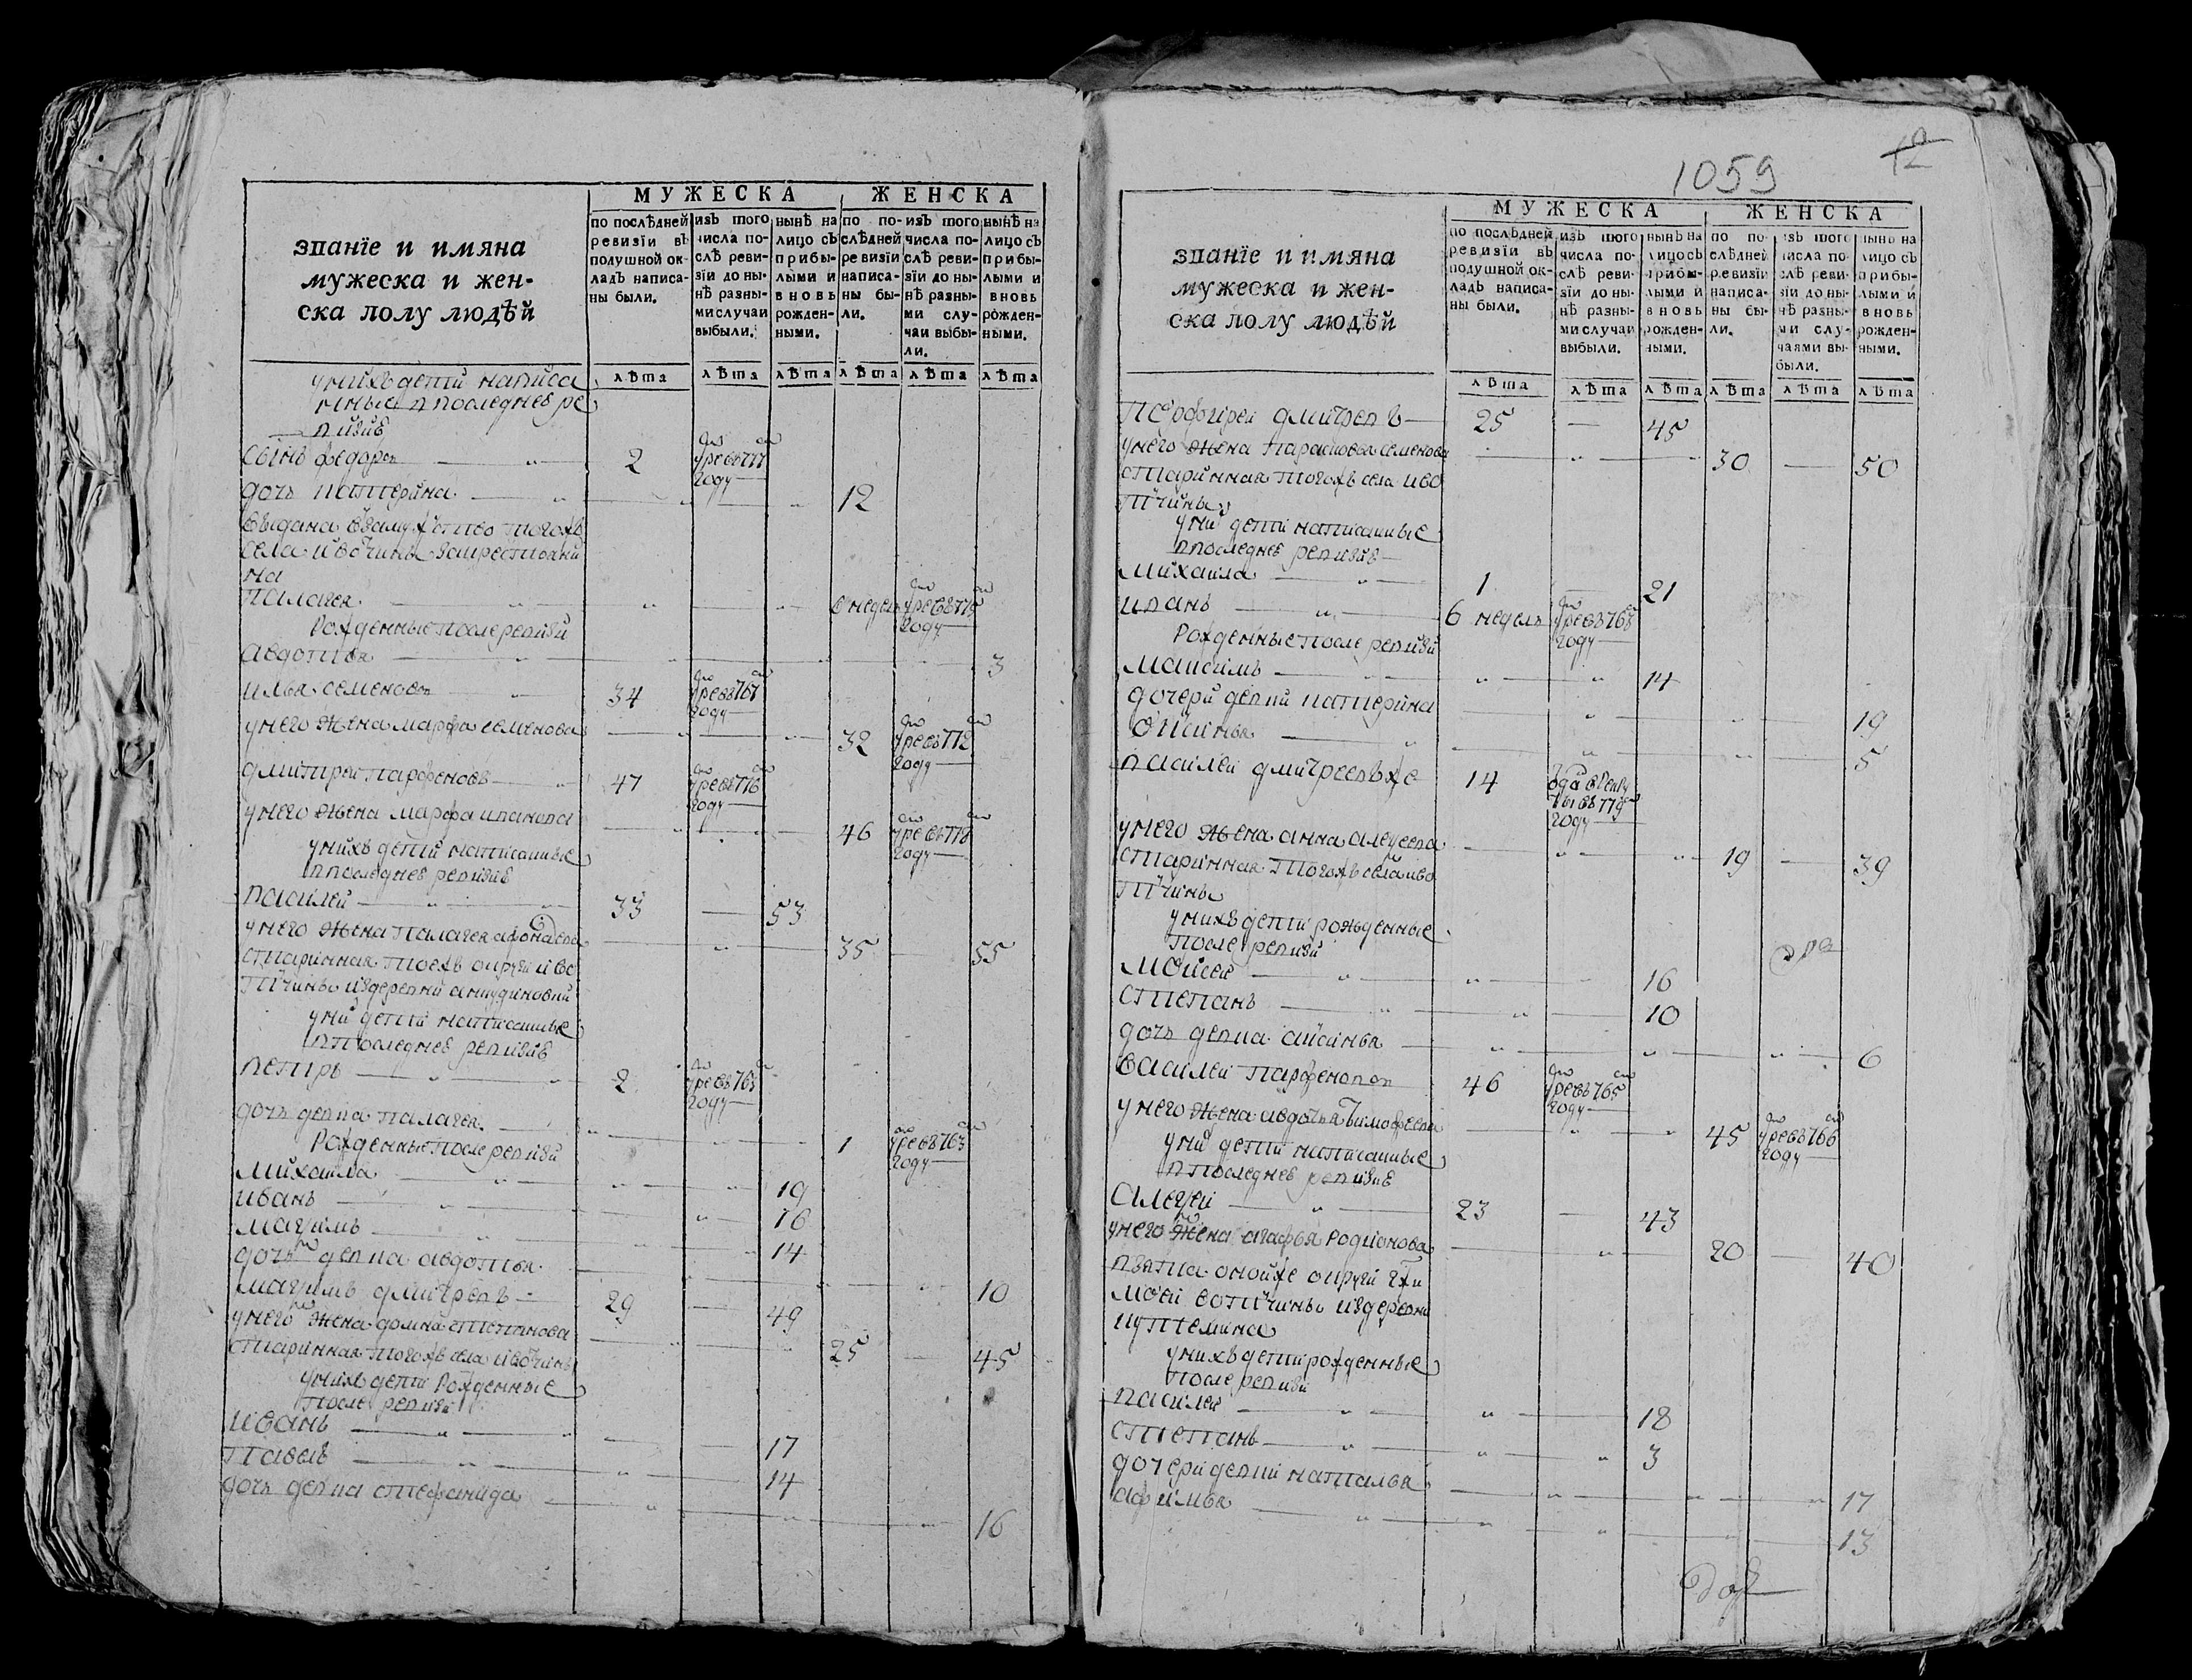 МУЖЕСКА ЖЕНСКА
званїе и имяна
мужеска и жен-
ска полу людѣй
по послѣдней ревизїи въ подушной ок- ладъ написа- ны были.
изъ того числа по- слѣ реви- зїи до ны- нѣ разны- ми случаи выбыли.
нынѣ на лицо съ прибы- лыми и вновь рожден- ными.
по по- слѣдней ревизїи написа- ны бы- ли.
изъ того числа по- слѣ реви- зїи до ны- нѣ разны- ми слу- чаи выбы- ли.
нынѣ на лицо съ прибы- лыми и вновь рожден- ными.
лѣта лѣта лѣта лѣта лѣта лѣта
у нихъ дети написа
нные в последнеѣ ре
визиѣ
сынъ федоръ 2 умре въ 777 году
дочь катерина 12
выдана взамужство тогожъ
села ивочины за крестьяни
на
палагея 6 недель умре въ 775 году
рожденные после ревизи
авдотья 3
илья семеновъ 34 умре въ 767 году
у него жена марфа семенова 32 умре въ 772 году
дмитреи парфеновъ 47 умре въ 776 году
у него жена марфа иванова 46 умре въ 778 году
у нихъ дети написанные
в последнеѣ ревизиѣ
василей 33 53
у него жена палагея афонасева 35 55
старинная тоежъ округи и во
тчины из деревни
у ни дети написанные
в последнеѣ ревизиѣ
петръ 2 умре въ 763 году
дочь девка палагея 1 умре въ 763 году
рожденные после ревизи
михаила 19
иванъ 16
мазимъ 14
дочь девка авдотья 10
мазимъ дмитревъ 29 49
у него жена домна степанова 25 45
старинная тогожъ села ивочины
у нихъ дети рожденные
после ревизи
иванъ 17
павелъ 14
дочь девка стефанида 16
1059
12
МУЖЕСКА ЖЕНСКА
званїе и имяна
мужеска и жен-
ска полу людѣй
по послѣдней ревизїи въ подушной ок- ладъ написа- ны были.
изъ того числа по- слѣ реви- зїи до ны- нѣ разны- ми случаи выбыли.
нынѣ на лицо съ прибы- лыми и вновь рожден- ными.
по по- слѣдней ревизїи написа- ны бы- ли.
изъ того числа по- слѣ реви- зїи до ны- нѣ разны- ми слу- чаями вы- были.
нынѣ на лицо съ прибы- лыми и вновь рожден- ными.
лѣта лѣта лѣта лѣта лѣта лѣта
перфиреи дмитревъ 25 45
у него жена парасковья семенова 30 50
старинная тогожъ села иво
тчины
у ни дети написанные
в последнеѣ ревизиѣ
михаила 1 21
иванъ 6 недель умре въ 768 году
рожденные после ревизи
максимъ 14
дочери девки катерина 19
оксинья 5
василей дмитреевъ же 14 отдан в рекруты въ 779 году
у него жена анна алексеева 19 39
старинная тогожъ села иво
тчины
у нихъ дети рожденные
после ревизи
моисей 16
степанъ 10
дочь девка аксинья 6
василеи парфеновъ 46 умре въ 765 году
у него жена авдотья тимофеева 45 умре въ 766 году
у ни дети написанные
в последнеѣ ревизиѣ
алексеи 23 43
у него жена агафья родионова 20 40
взята оноиже округи
моеи вотчины из деревни
у нихъ дети рожденные
после ревизи
василей 18
степанъ 3
дочери девки наталья 17
афимья 13